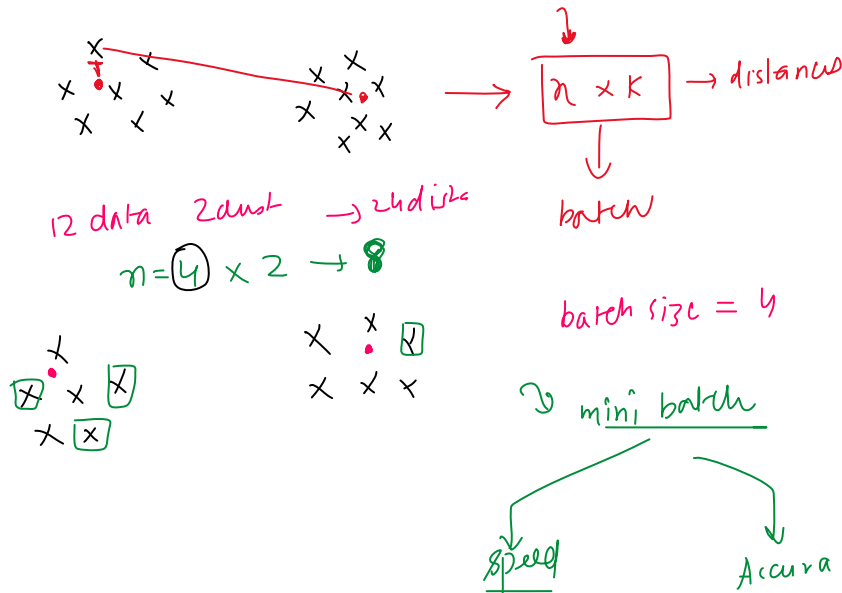 n x K → distances
batch
12 data 2 clust → 24 dista
n = 4 x 2 → 8
batch size = 4
mini batch
speed
Accura